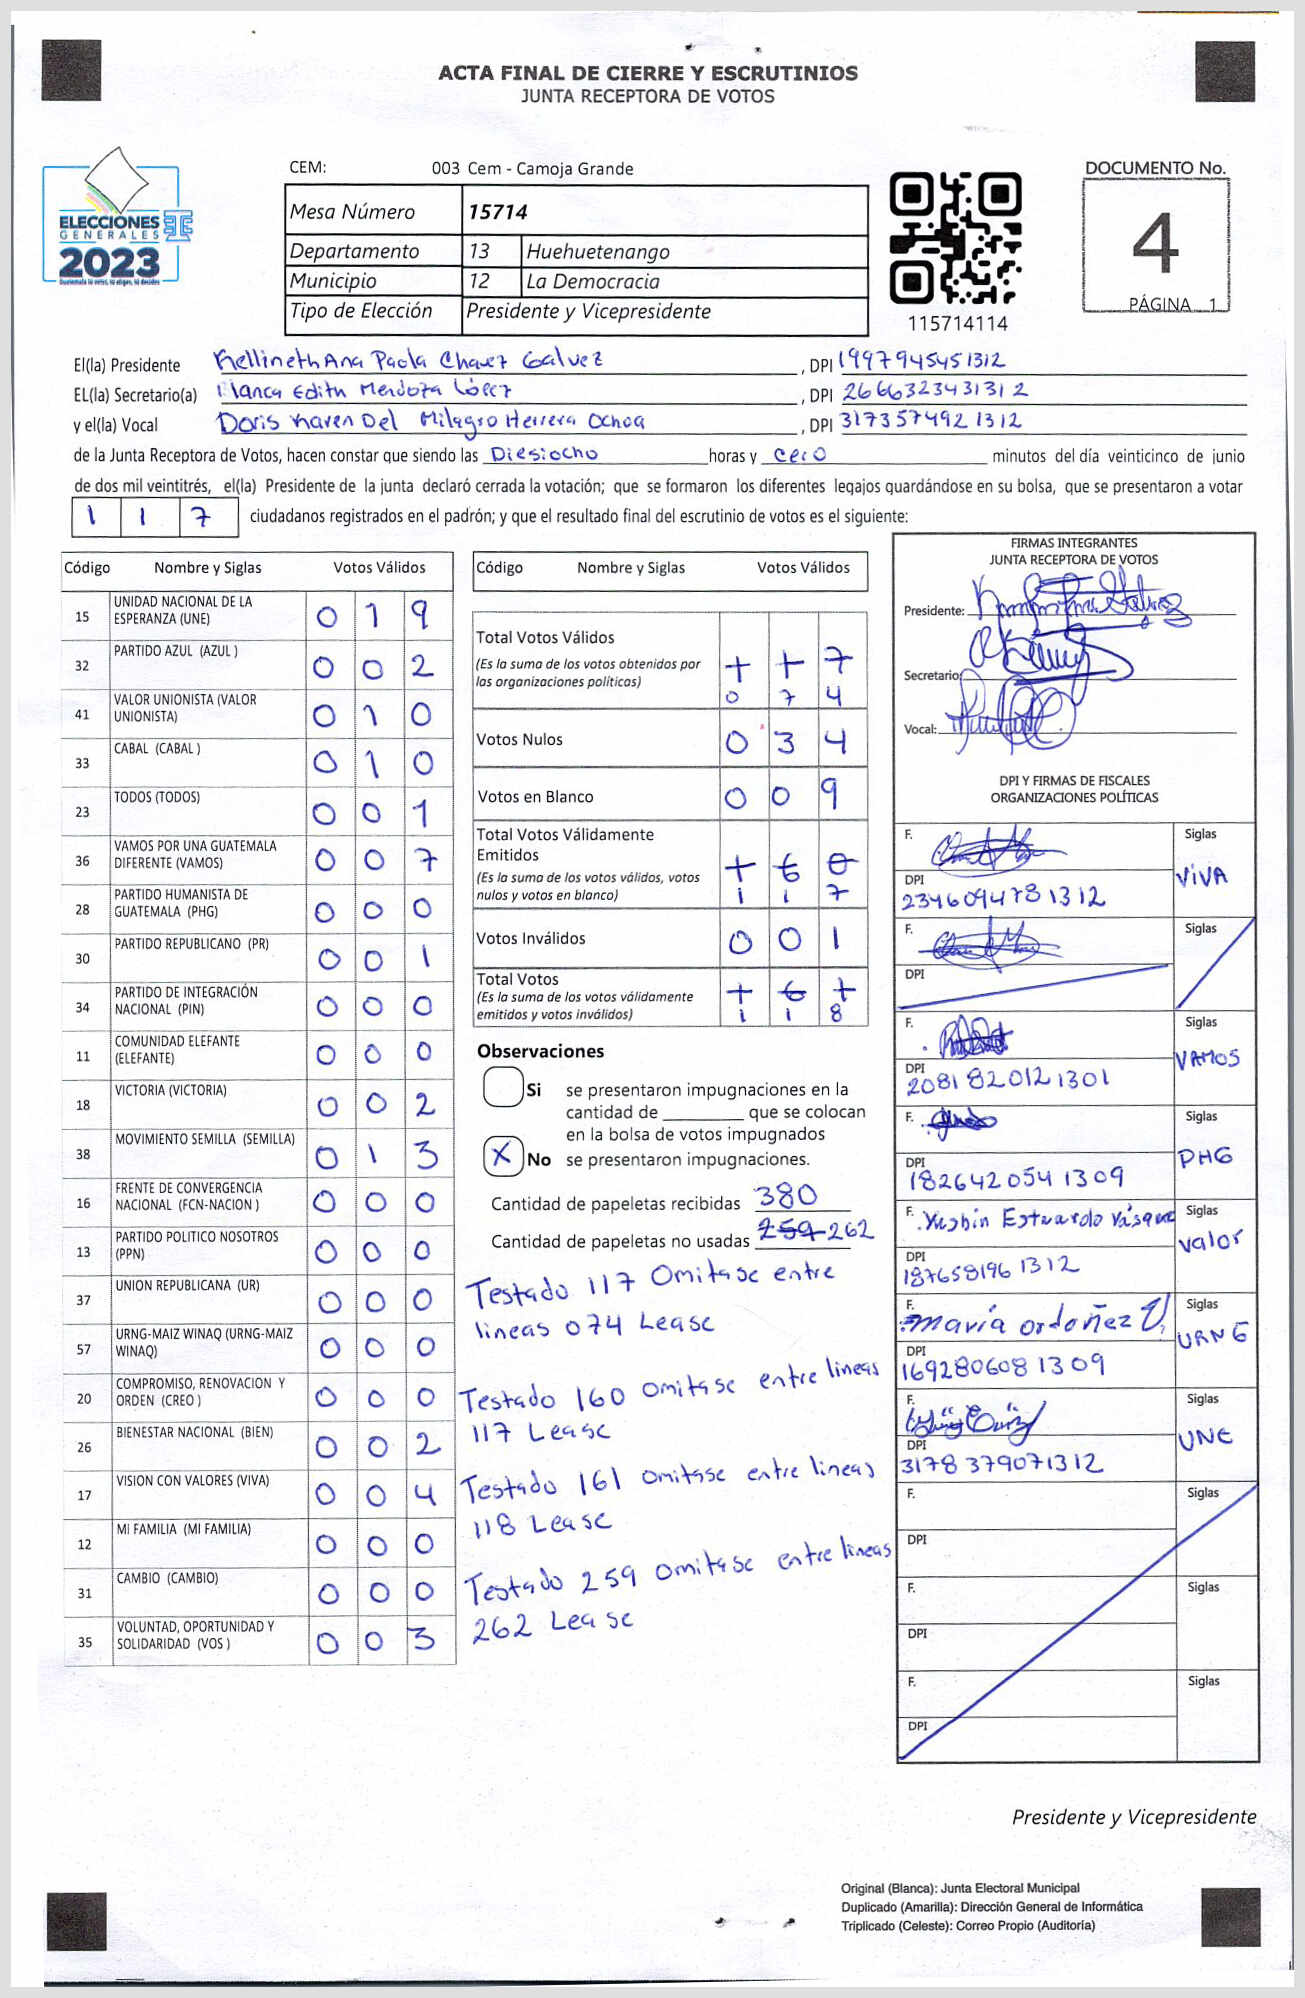 ACTA FINAL DE CIERRE Y ESCRUTINIOS
JUNTA RECEPTORA DE VOTOS
ELECCIONES
GENERALES
2023
CEM: 003 Cem - Camoja Grande
Mesa Número 15714
Departamento 13 Huehuetenango
Municipio 12 La Democracia
Tipo de Elección Presidente y Vicepresidente
115714114
DOCUMENTO No.
4
PÁGINA 1
El(la) Presidente Kellineth Ana Paola Chavez Galvez, DPI 1997945451312
EL(la) Secretario(a) Blanca Edith Mendoza López, DPI 2666323431312
y el(la) Vocal Doris Karen Del Milagro Herrera Ochoa, DPI 3173574921312
de la Junta Receptora de Votos, hacen constar que siendo las Diesiocho horas y cero minutos del día veinticinco de junio
de dos mil veintitrés, el(la) Presidente de la junta declaró cerrada la votación; que se formaron los diferentes legajos guardándose en su bolsa, que se presentaron a votar
1 1 7 ciudadanos registrados en el padrón; y que el resultado final del escrutinio de votos es el siguiente:
Código Nombre y Siglas Votos Válidos
15 UNIDAD NACIONAL DE LA ESPERANZA (UNE) 0 1 9
32 PARTIDO AZUL (AZUL ) 0 0 2
41 VALOR UNIONISTA (VALOR UNIONISTA) 0 1 0
33 CABAL (CABAL ) 0 1 0
23 TODOS (TODOS) 0 0 1
36 VAMOS POR UNA GUATEMALA DIFERENTE (VAMOS) 0 0 7
28 PARTIDO HUMANISTA DE GUATEMALA (PHG) 0 0 0
30 PARTIDO REPUBLICANO (PR) 0 0 1
34 PARTIDO DE INTEGRACIÓN NACIONAL (PIN) 0 0 0
11 COMUNIDAD ELEFANTE (ELEFANTE) 0 0 0
18 VICTORIA (VICTORIA) 0 0 2
38 MOVIMIENTO SEMILLA (SEMILLA) 0 1 3
16 FRENTE DE CONVERGENCIA NACIONAL (FCN-NACION ) 0 0 0
13 PARTIDO POLITICO NOSOTROS (PPN) 0 0 0
37 UNION REPUBLICANA (UR) 0 0 0
57 URNG-MAIZ WINAQ (URNG-MAIZ WINAQ) 0 0 0
20 COMPROMISO, RENOVACION Y ORDEN (CREO ) 0 0 0
26 BIENESTAR NACIONAL (BIEN) 0 0 2
17 VISION CON VALORES (VIVA) 0 0 4
12 MI FAMILIA (MI FAMILIA) 0 0 0
31 CAMBIO (CAMBIO) 0 0 0
35 VOLUNTAD, OPORTUNIDAD Y SOLIDARIDAD (VOS ) 0 0 3
Código Nombre y Siglas Votos Válidos
Total Votos Válidos 1 1 7
(Es la suma de los votos obtenidos por
las organizaciones políticas) 0 7 4
Votos Nulos 0 3 4
Votos en Blanco 0 0 9
Total Votos Válidamente
Emitidos 1 6 0
(Es la suma de los votos válidos, votos
nulos y votos en blanco) 1 1 7
Votos Inválidos 0 0 1
Total Votos 1 6 1
(Es la suma de los votos válidamente
emitidos y votos inválidos) 1 1 8
Observaciones
Si se presentaron impugnaciones en la
cantidad de ________ que se colocan
en la bolsa de votos impugnados
X No se presentaron impugnaciones.
Cantidad de papeletas recibidas 380
Cantidad de papeletas no usadas 259 262
Testado 117 Omitase entre
lineas 074 Lease
Testado 160 omitase entre lineas
117 Lease
Testado 161 omitase entre lineas
118 Lease
Testado 259 omitase entre lineas
262 Lease
FIRMAS INTEGRANTES
JUNTA RECEPTORA DE VOTOS
Presidente:
Secretario:
Vocal:
DPI Y FIRMAS DE FISCALES
ORGANIZACIONES POLÍTICAS
F. Siglas
DPI VIVA
2346094781312
F. Siglas
DPI
F. Siglas
DPI VAMOS
2081820121301
F. Siglas
DPI PHG
1826420541309
F. Yushin Estuardo Vásquez Siglas
DPI valor
1876581961312
F. maría ordoñez V. Siglas
DPI URNG
1692806081309
F. Siglas
DPI UNE
3178379071312
F. Siglas
DPI
F. Siglas
DPI
F. Siglas
DPI
Presidente y Vicepresidente
Original (Blanca): Junta Electoral Municipal
Duplicado (Amarilla): Dirección General de Informática
Triplicado (Celeste): Correo Propio (Auditoría)